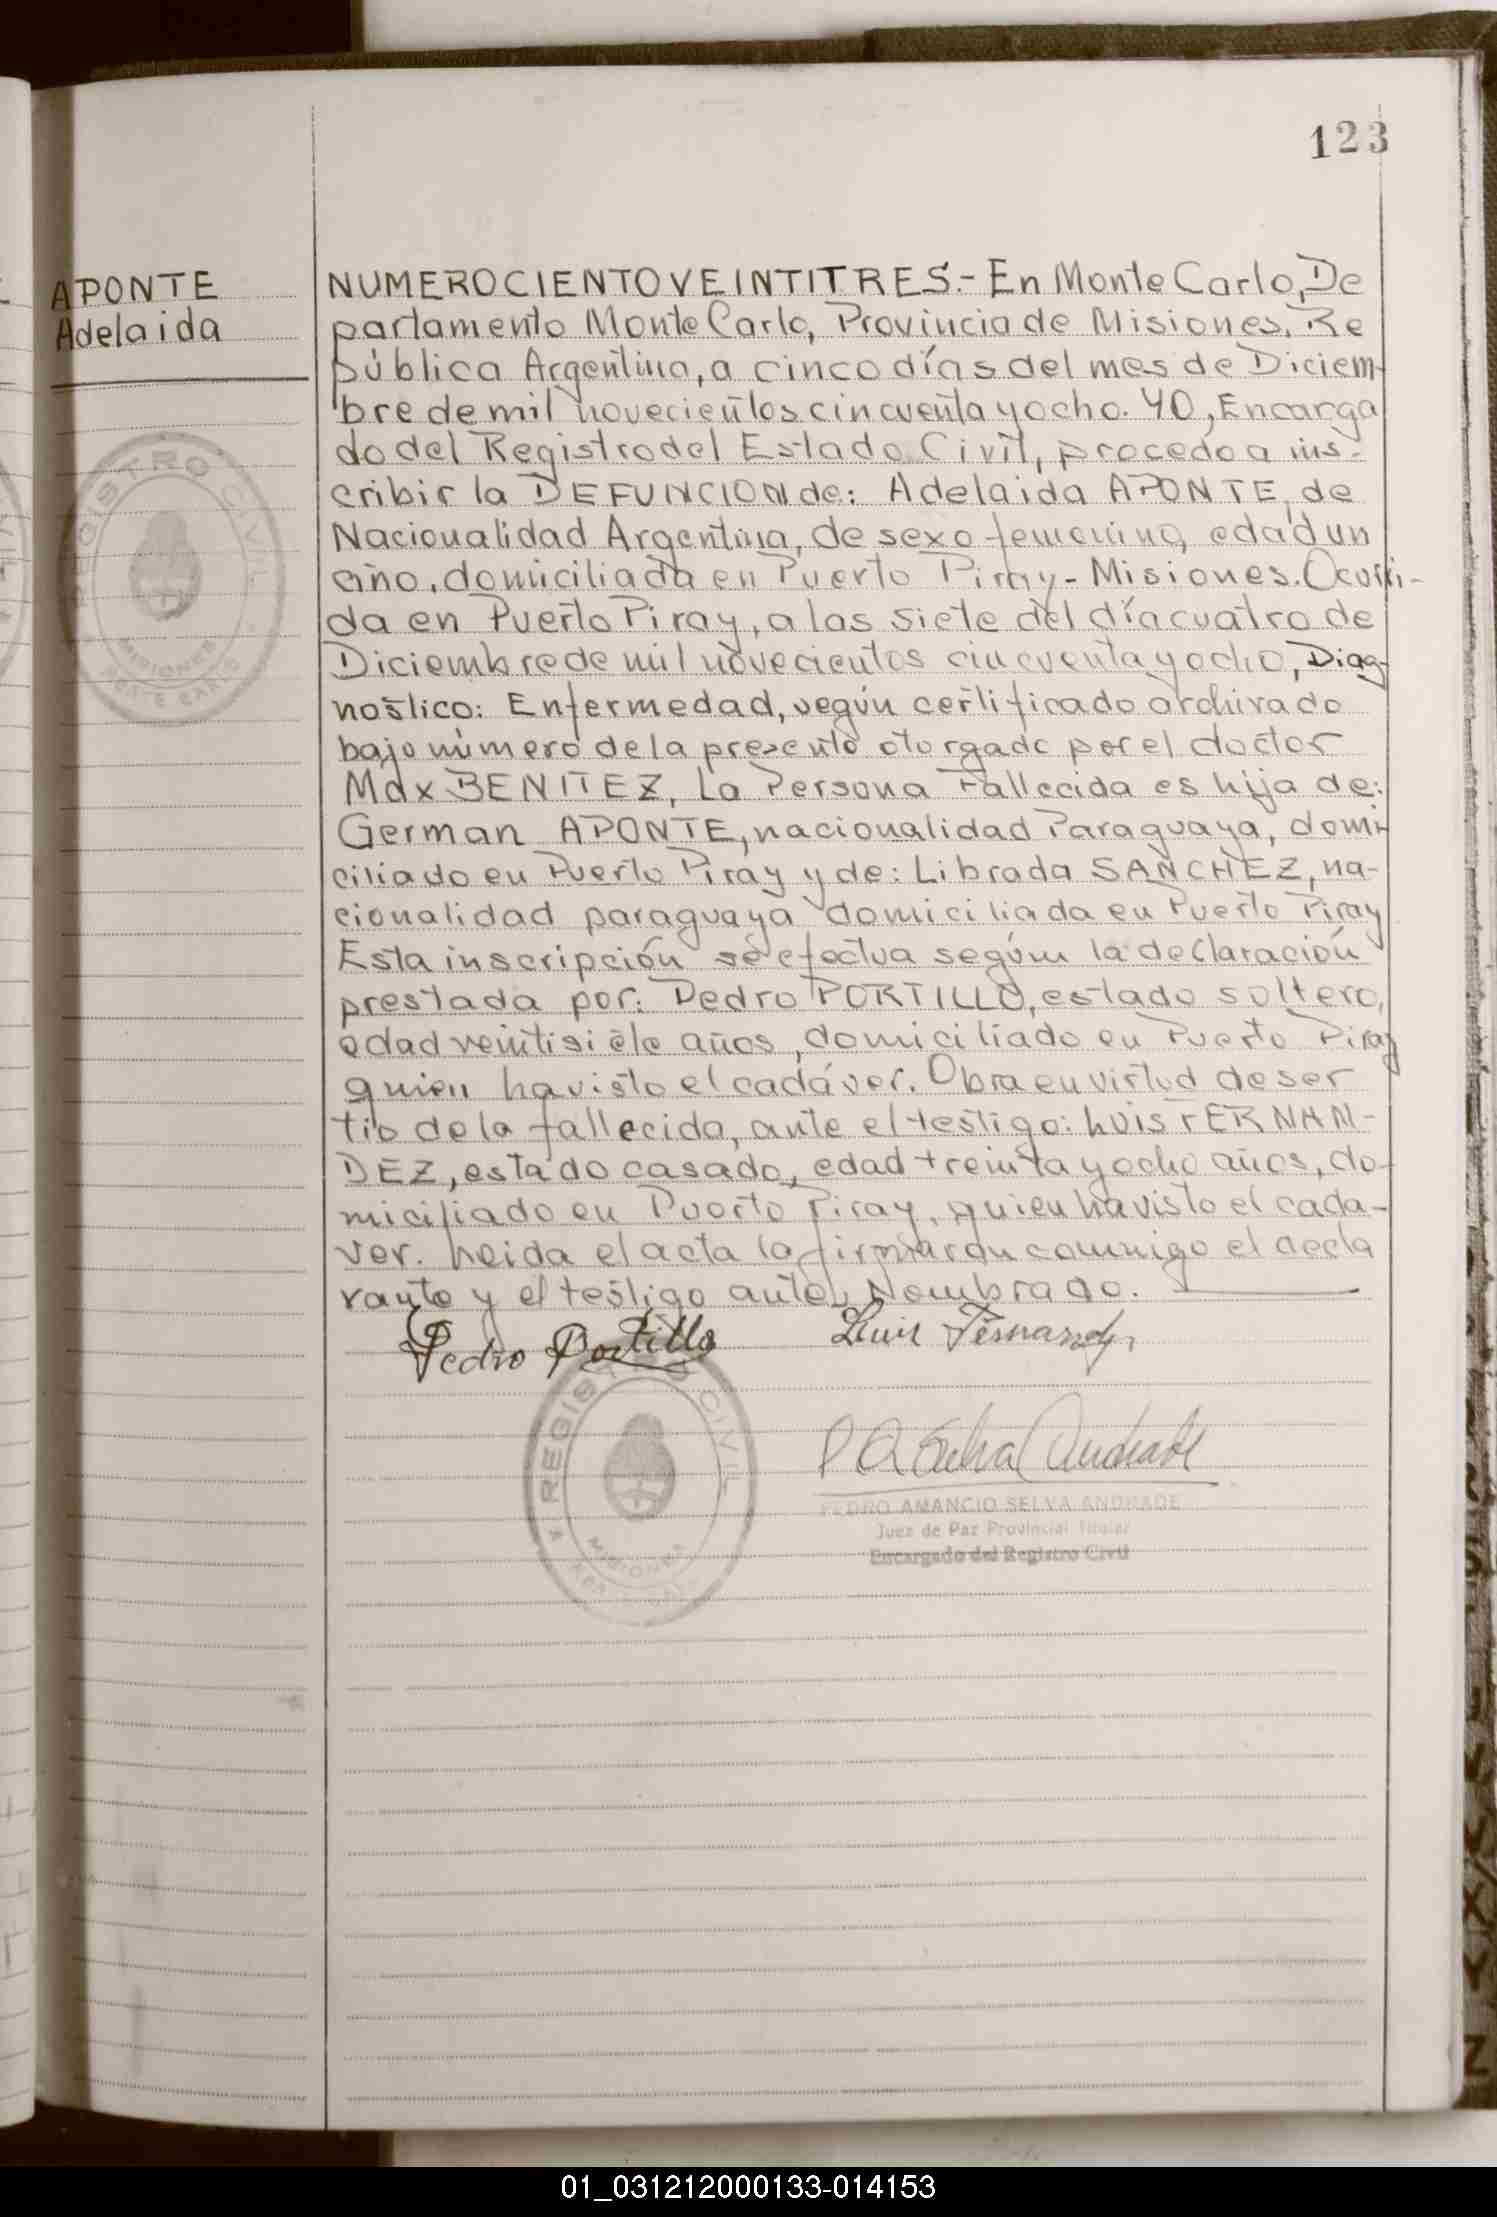 123
APONTE
Adelaida
NUMERO CIENTO VEINTITRES.- En Monte Carlo, De
partamento Monte Carlo, Provincia de Misiones, Re
pública Argentina, a cinco días del mes de Diciem-
bre de mil novecientos cincuenta y ocho. YO, Encarga
do del Registro del Estado Civil, procedo a ins-
cribir la DEFUNCION de: Adelaida APONTE, de
Nacionalidad Argentina, de sexo femenino, edad un
año, domiciliada en Puerto Piray - Misiones. Ocurri-
da en Puerto Piray, a las siete del día cuatro de
Diciembre de mil novecientos cincuenta y ocho, Diag-
nostico: Enfermedad, según certificado archivado
bajo número de la presente otorgado por el doctor
Max BENITEZ, La Persona Fallecida es hija de:
German APONTE, nacionalidad Paraguaya, domi-
ciliado en Puerto Piray y de: Librada SANCHEZ, na-
cionalidad paraguaya domiciliada en Puerto Piray
Esta inscripción se efectua según la declaración
prestada por: Pedro PORTILLO, estado soltero,
edad veintisiete años, domiciliado en Puerto Piray
quien ha visto el cadáver. Obra en virtud de ser
tio de la fallecida, ante el testigo: Luis FERNAN-
DEZ, estado casado, edad treinta y ocho años, do-
miciliado en Puerto Piray, quien ha visto el cada-
ver. Leida el acta la firmaron conmigo el decla
rante y el testigo antes Nombrado.
Pedro Portillo Luis Fernandez
REGISTRO CIVIL
MISIONES
REGISTRO CIVIL
MISIONES
P A Selva Andrade
PEDRO AMANCIO SELVA ANDRADE
Juez de Paz Provincial Titular
Encargado del Registro Civil
01_031212000133-014153